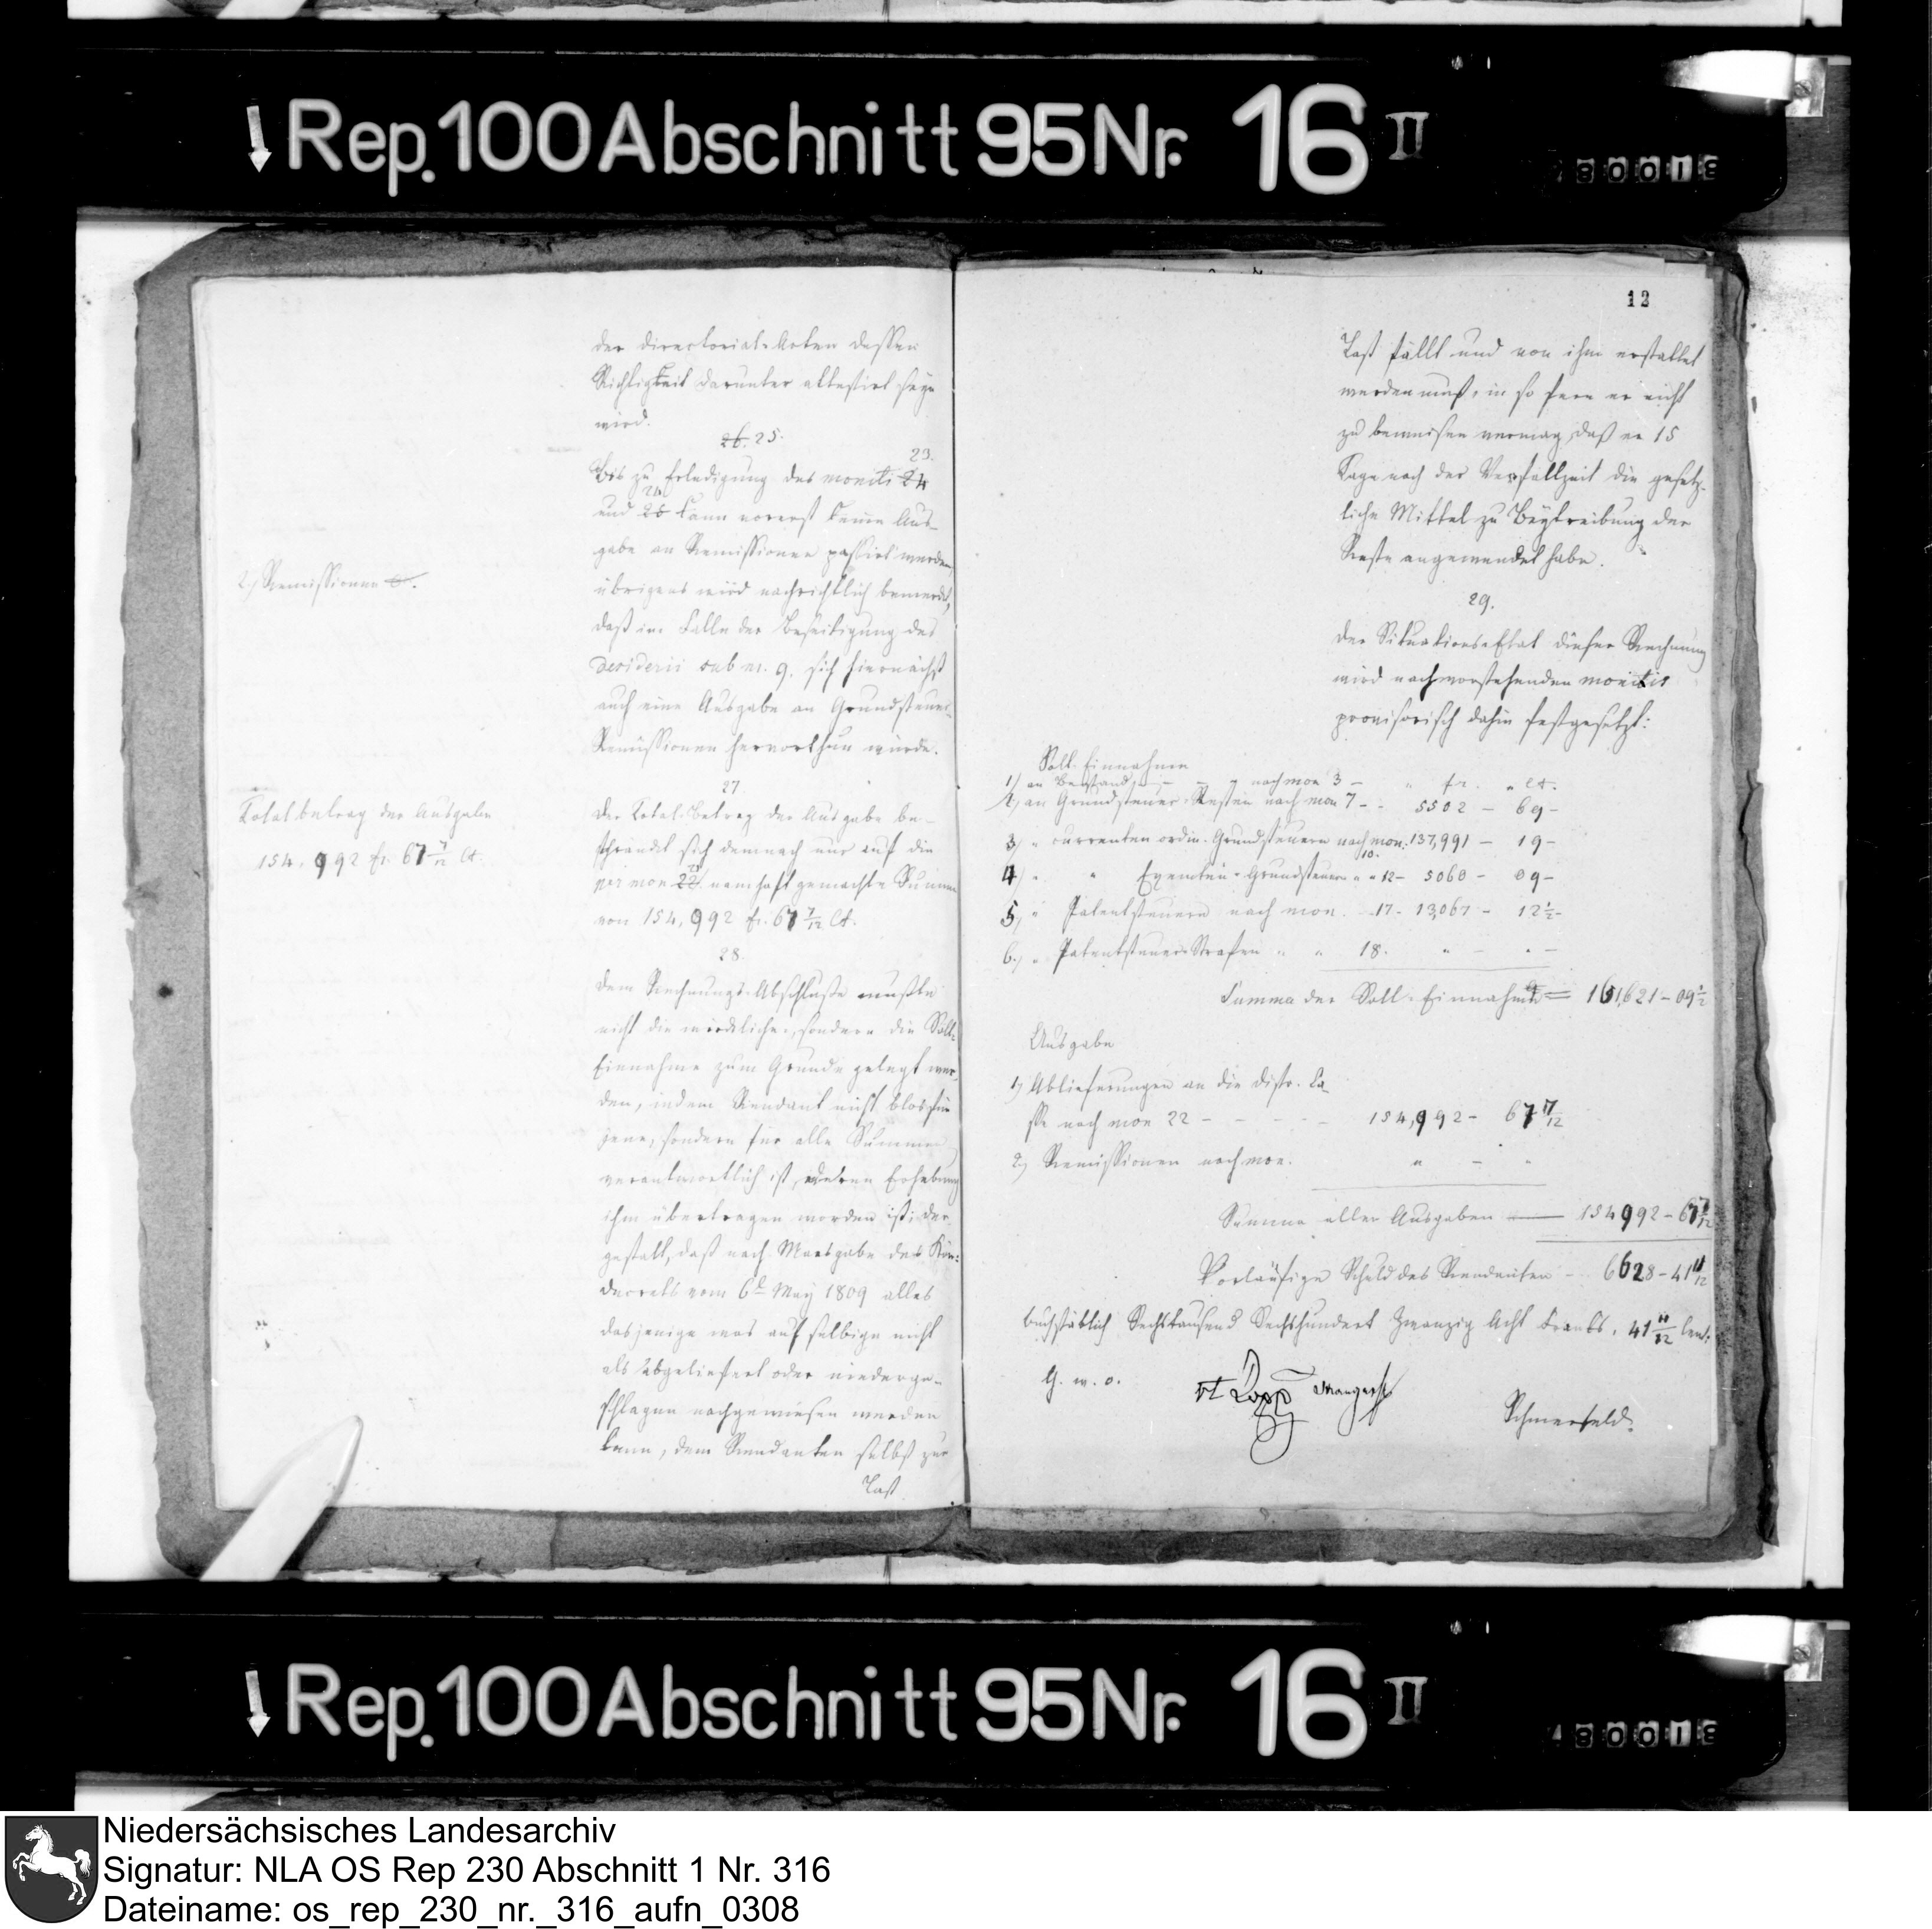 Rep. 100 Abschnitt 95 Nr. 16 II
der directorial-Acten dessen
Richtigkeit darunter attestirt seyn
wird.
26. 25.
23.
Bis zu Erledigung des moniti 24
24
und 25 kann vorerst keine Aus-
gabe an Remissionen passirt werden,
2.) Remissionen
übrigens wird nachrichtlich bemerkt,
daß im Falle der Beseitigung des
desiderii sub nr. 9. sich hiernächst
auch eine Ausgabe an Grundsteuer-
Remissionen hervorthun würde.
27
Totalbetrag der Ausgaben
154,992 fr. 67 7/12 Ct.
Der Total-Betrag der Ausgabe be-
schränkt sich demnach nur auf die
per mon 22 namhaft gemachte Summe
von 154,992 fr. 67 7/12 Ct.
28.
Dem Rechnungs-Abschlusse mußte
nicht die wirkliche, sondern die Soll-
Einnahme zum Grunde gelegt wer-
den, indem Rendant nicht blos für
jene, sondern für alle Summen
verantwortlich ist, deren Erhebung
ihm übertragen worden ist; der-
gestalt, daß nach Maasgabe des Kön:
Decrets vom 6t May 1809 alles
dasjenige was auf selbige nicht
als abgeliefert oder niederge-
schlagen nachgewiesen werden
kann, dem Rendanten selbst zur
Last
12
Last fällt und von ihm erstattet
werden muß, in so fern er nicht
zu beweisen vermag, daß er 15
Tage nach der Verfallzeit die gesetz-
liche Mittel zu Beytreibung der
Reste angewendet habe.
29.
Der Situations-Etat dieser Rechnung
wird nach vorstehenden monitis
provisorisch dahin festgesetzt:
Soll-Einnahme
1) an Bestand - - - nach mon 3 - " fr. " Ct.
2) an Grundsteuer-Resten nach mon 7 - - 5502 - 69 -
3) " currenten ordin. Grundsteuern nach mon: 137,991 - 19 -
10.
4) " " Exemten-Grundsteuern " " 12 - 5060 - 09 -
5) " Patentsteuern nach mon. 17 - 13,067 - 12 1/2 -
6.) " Patentsteuer-Strafen " " 18. " - " -
Summa der Soll-Einnahme = 161,621 - 09 1/2
Ausgabe
1) Ablieferungen an die distr. Ca
sse nach mon 22 - - - - - 154,992 - 67 7/12
2) Remissionen nach mon. " - "
Summa aller Ausgaben — 154992 - 67 7/12
Vorläufige Schuld des Rendanten - 6628 - 41 11/12
buchstäblich Sechstausend Sechshundert Zwanzig Acht Franks, 41 11/12 Cent:
G. w. o.
Schmerfeld.
Rep. 100 Abschnitt 95 Nr. 16 II
Niedersächsisches Landesarchiv
Signatur: NLA OS Rep 230 Abschnitt 1 Nr. 316
Dateiname: os_rep_230_nr._316_aufn_0308